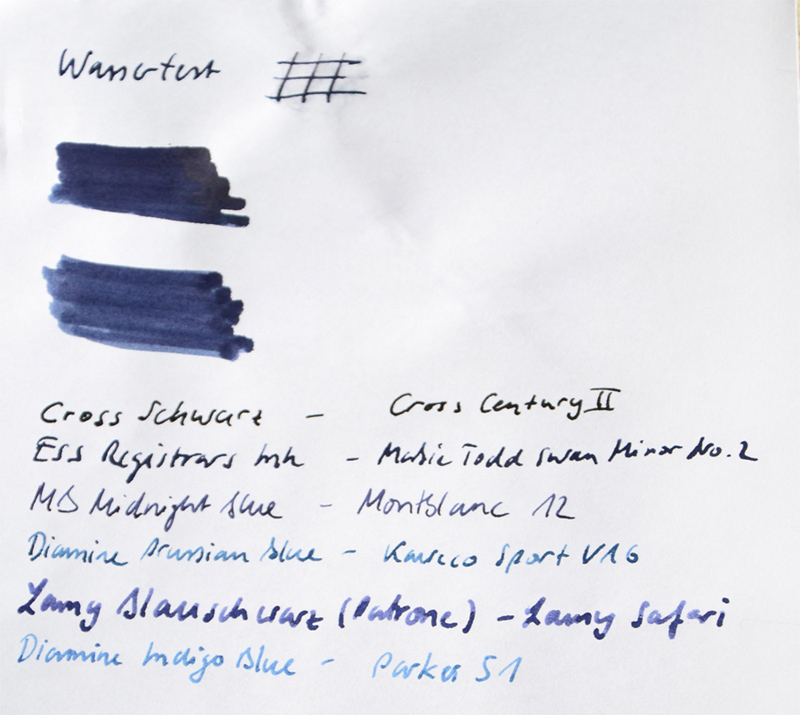 Wassertest
Cross Schwarz – Cross Century II
ESS Registrars Ink – Mabie Todd Swan Minor No. 2
MB Midnight Blue – Montblanc 12
Diamine Prussian Blue – Kaweco Sport V16
Lamy Blauschwarz (Patrone) – Lamy Safari
Diamine Indigo Blue – Parker 51